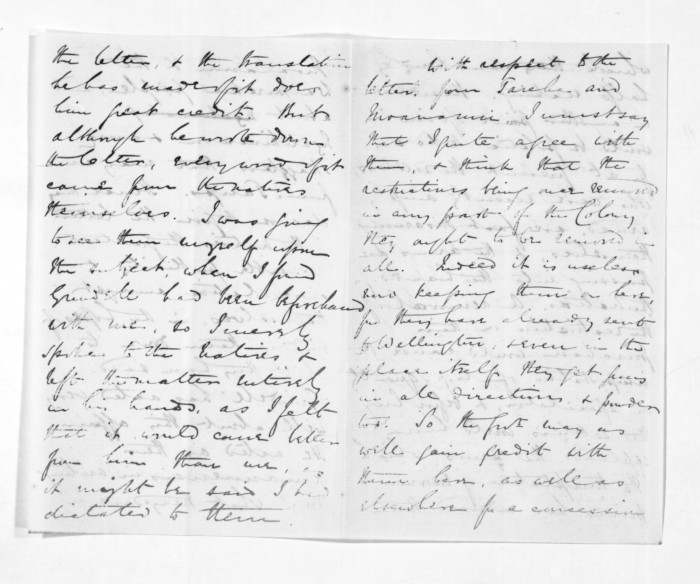 the letter, & the translation
he has made of it does
him great credit. But
although he wrote down
the letter, every word of it
came from the natives
themselves. I was going
to see them myself upon
the subject, when I found
Grindell had been beforehand
with me, so I merely
spoke to the Natives &
left the matter entirely
in his hands, as I felt
that it would come better
from him than me, as
it might be said I had
dictated to them.
With respect to the
letter from Tareha and
Moananui I must say
that I quite agree with
them, & think that the
restrictions being once removed
in any part of the Colony
they ought to be removed in
all. Indeed it is useless
now keeping them on here,
for they have already sent
to Wellington, & even in the
place itself they get guns
in all directions, & powder
too. So the Govt may as
well gain credit with
them here, as well as
elsewhere for a concession